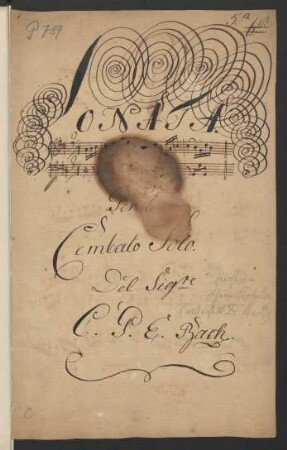 P 789
SONATA
Cembalo Solo.
Del Sigre
C. P. E. Bach.